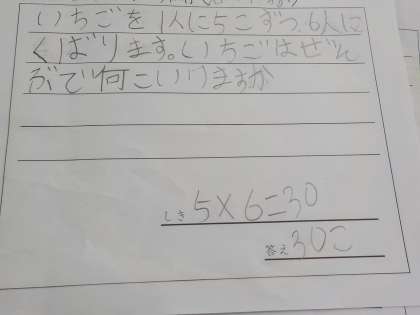 いちごを1人に5こずつ、6人に
くばります。いちごはぜん
ぶで何こいりますか
しき 5×6=30
答え 30こ